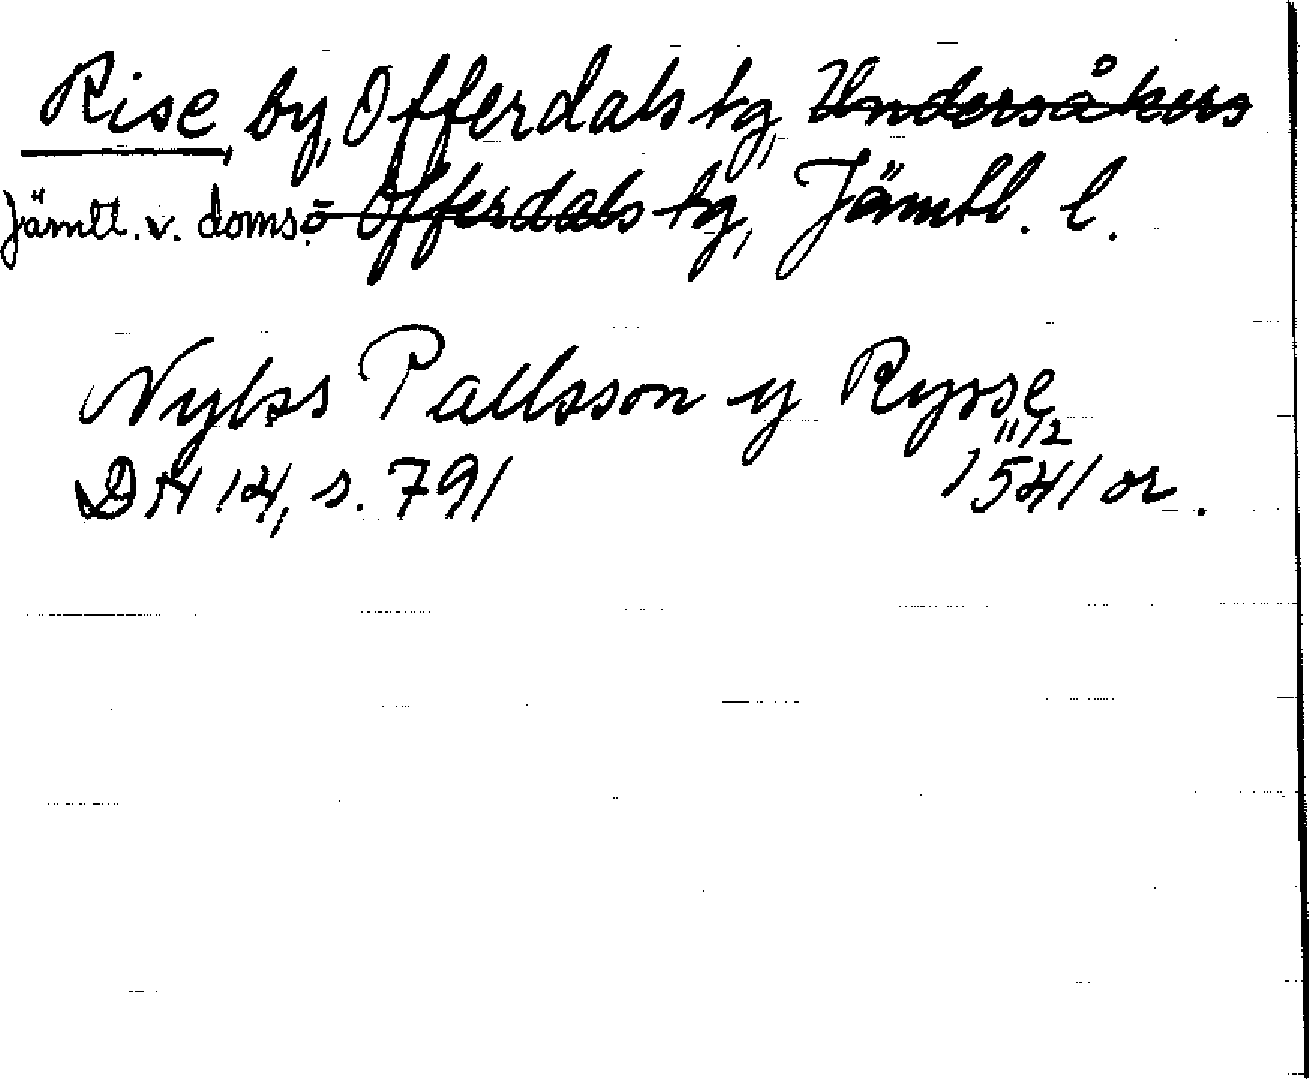 Rise, by, Offerdals tg, Undersåkers
Jämtl. v. doms. o Offerdals tg, Jämtl. l.
Nylss Pallsson y Rysse
11/2
DN 14, s. 791 1541 or.